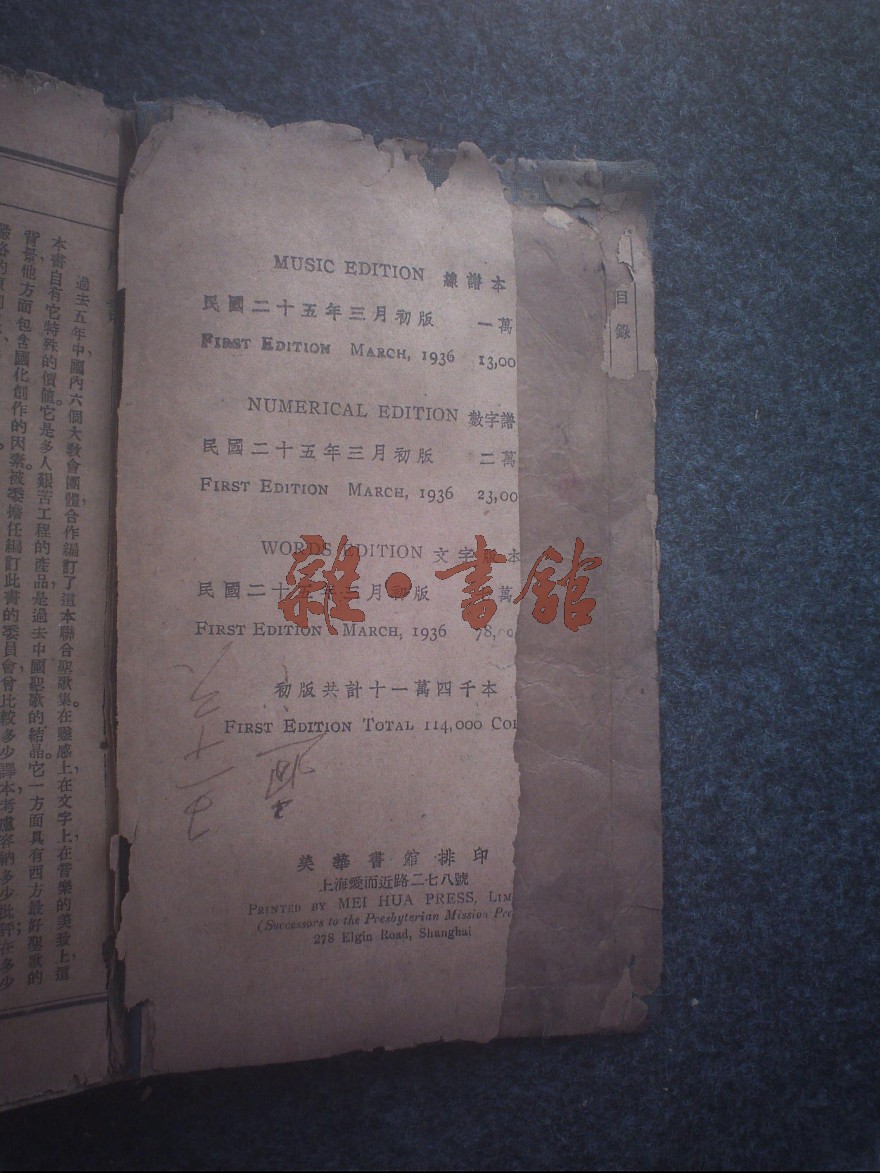 過去五年中,國內六個大教會團體合作編訂了這本聯合聖歌集。在靈感上,在文字上,在音樂的美致上,這
本書自有它特殊的價值。它是多人艱苦工程的產品,是過去中國聖歌的結晶。它一方面具有西方最好聖歌的
背景,他方面包含國化創作的因素。被委擔任編訂此書的委員會曾比較多少譯本,考慮容納多少批評;在多少
MUSIC EDITION 線譜本
民國二十五年三月初版 一萬
FIRST EDITION MARCH, 1936 13,00
NUMERICAL EDITION 數字譜
民國二十五年三月初版 二萬
FIRST EDITION MARCH, 1936 23,00
WORDS EDITION 文字 本
民國二十五年三月初版 萬
FIRST EDITION MARCH, 1936 78,
初版共計十一萬四千本
FIRST EDITION TOTAL 114,000 CO
美華書館排印
上海愛而近路二七八號
PRINTED BY MEI HUA PRESS, LIM
(Successors to the Presbyterian Mission Pre
278 Elgin Road, Shanghai
目錄
雜·書館